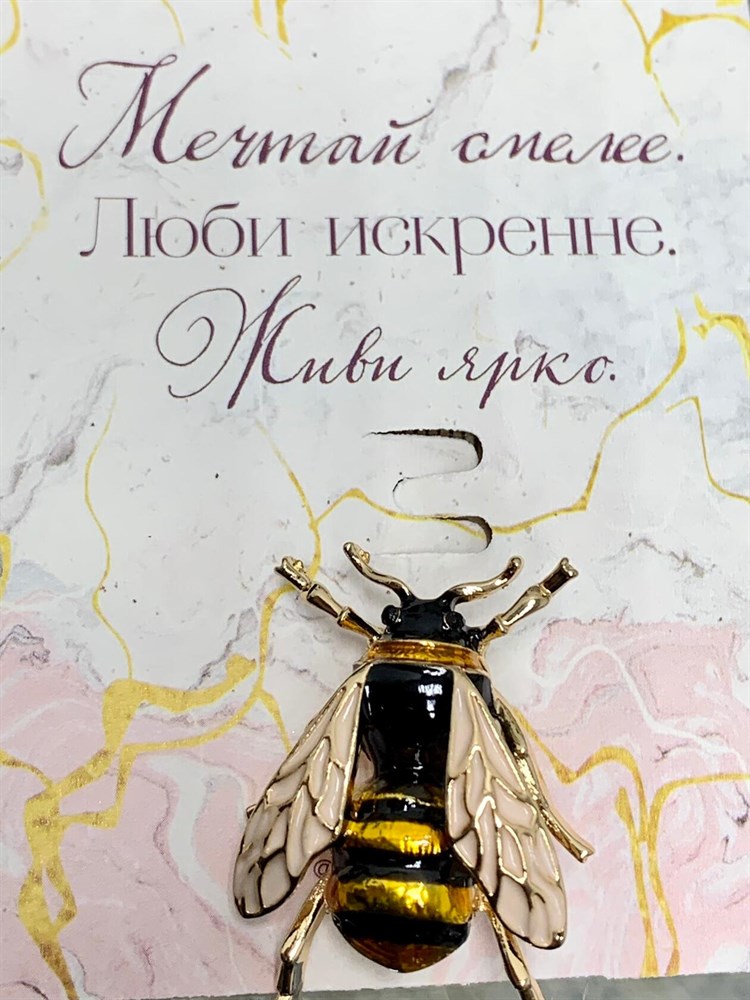 Мечтай смелее.
Люби искренне.
Живи ярко.
@